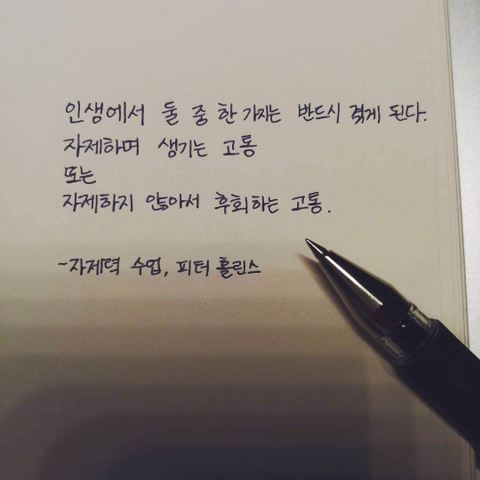 인생에서 둘 중 한 가지는 반드시 겪게 된다.
자제하며 생기는 고통
또는
자제하지 않아서 후회하는 고통.
~자제력 수업, 피터 홀린스